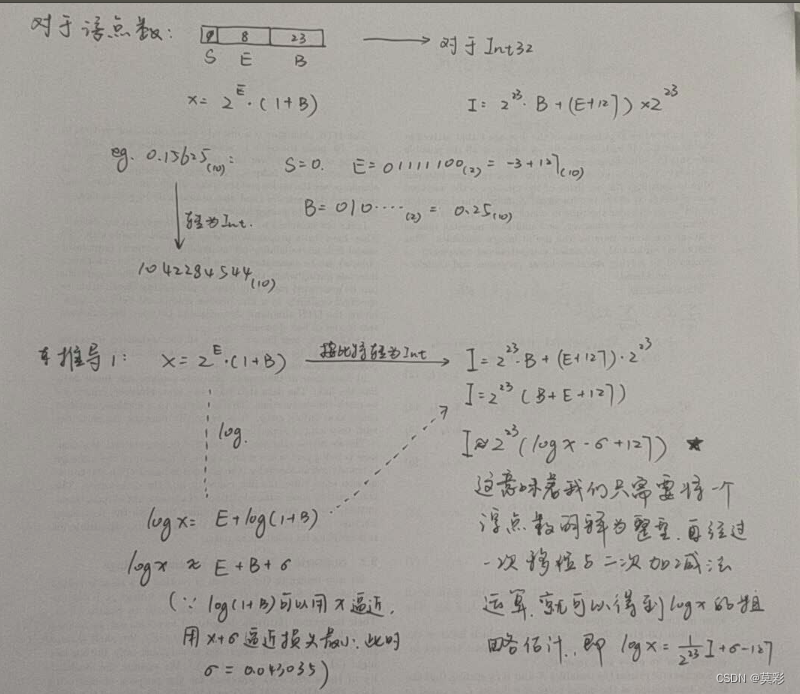 对于浮点数: 8 23 → 对于 Int32
S E B
x = 2^E·(1+B) I: 2^23·B+(E+127)×2^23
eg. 0.15625(10): S=0. E=01111100(2)=-3+127(10)
转为Int. B=010····(2)=0.25(10)
1042284544(10)
推导1: x=2^E·(1+B) 按比特转为Int I=2^23·B+(E+127)·2^23
I=2^23(B+E+127)
log. I≈2^23(logx-σ+127) ★
这意味着我们只需要将一个
logx= E+log(1+B) 浮点数的释为整型,再经过
logx ≈ E+B+σ 一次移位与二次加减法
(∵ log(1+B)可以用x逼近, 运算,就可以得到logx的粗
用x+σ逼近损失最小,此时 略估计,即 logx=1/2^23 I+σ-127
σ=0.043035)
CSDN @莫彩